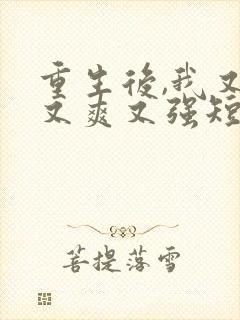 重生後,我又
又爽又强短
菩提落雪